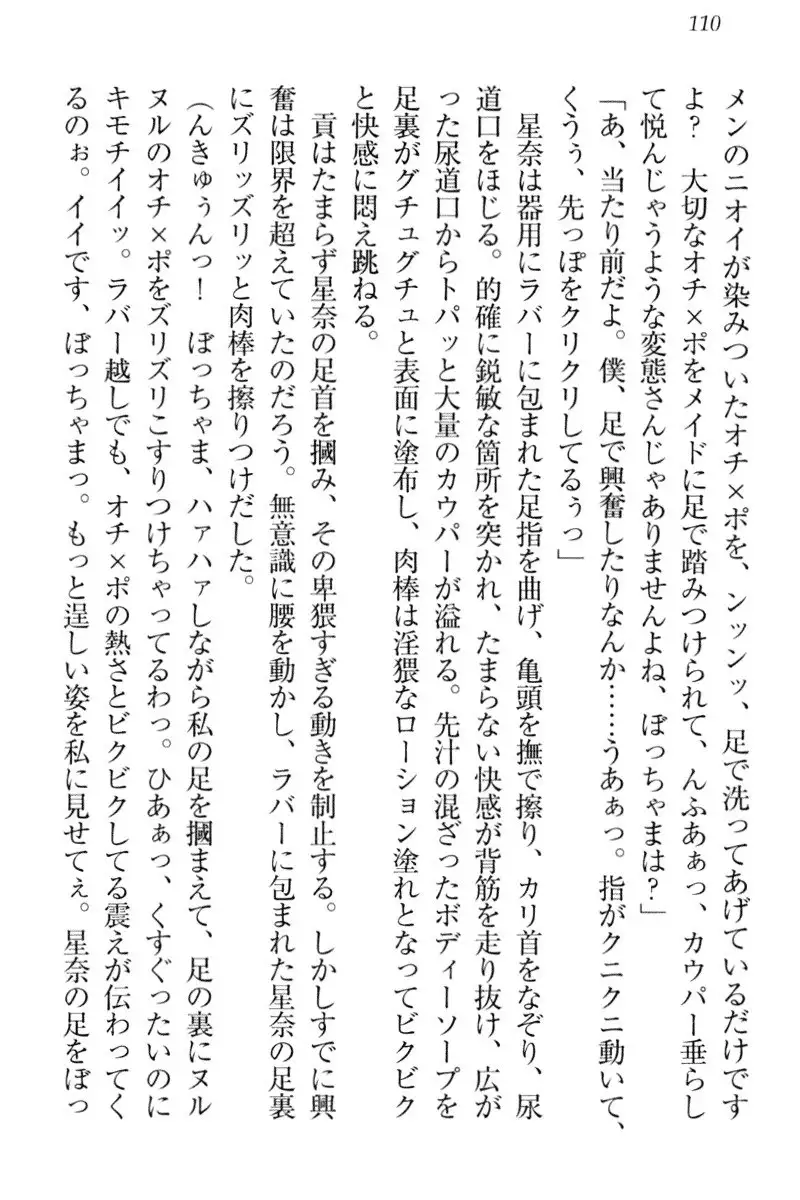 110
メンのニオイが染みついたオチ×ポを、ンッンッ、足で洗ってあげているだけです
よ？　大切なオチ×ポをメイドに足で踏みつけられて、んふあぁっ、カウパー垂らし
て悦んじゃうような変態さんじゃありませんよね、ぼっちゃまは？」
「あ、当たり前だよ。僕、足で興奮したりなんか……うあぁっ。指がクニクニ動いて、
くうぅ、先っぽをクリクリしてるぅっ」
星奈は器用にラバーに包まれた足指を曲げ、亀頭を撫で擦り、カリ首をなぞり、尿
道口をほじる。的確に鋭敏な箇所を突かれ、たまらない快感が背筋を走り抜け、広が
った尿道口からトパッと大量のカウパーが溢れる。先汁の混ざったボディーソープを
足裏がグチュグチュと表面に塗布し、肉棒は淫猥なローション塗れとなってビクビク
と快感に悶え跳ねる。
貢はたまらず星奈の足首を摑み、その卑猥すぎる動きを制止する。しかしすでに興
奮は限界を超えていたのだろう。無意識に腰を動かし、ラバーに包まれた星奈の足裏
にズリッズリッと肉棒を擦りつけだした。
（んきゅぅんっ！　ぼっちゃま、ハァハァしながら私の足を摑まえて、足の裏にヌル
ヌルのオチ×ポをズリズリこすりつけちゃってるわっ。ひあぁっ、くすぐったいのに
キモチイイッ。ラバー越しでも、オチ×ポの熱さとビクビクしてる震えが伝わってく
るのぉ。イイです、ぼっちゃまっ。もっと逞しい姿を私に見せてぇ。星奈の足をぼっ